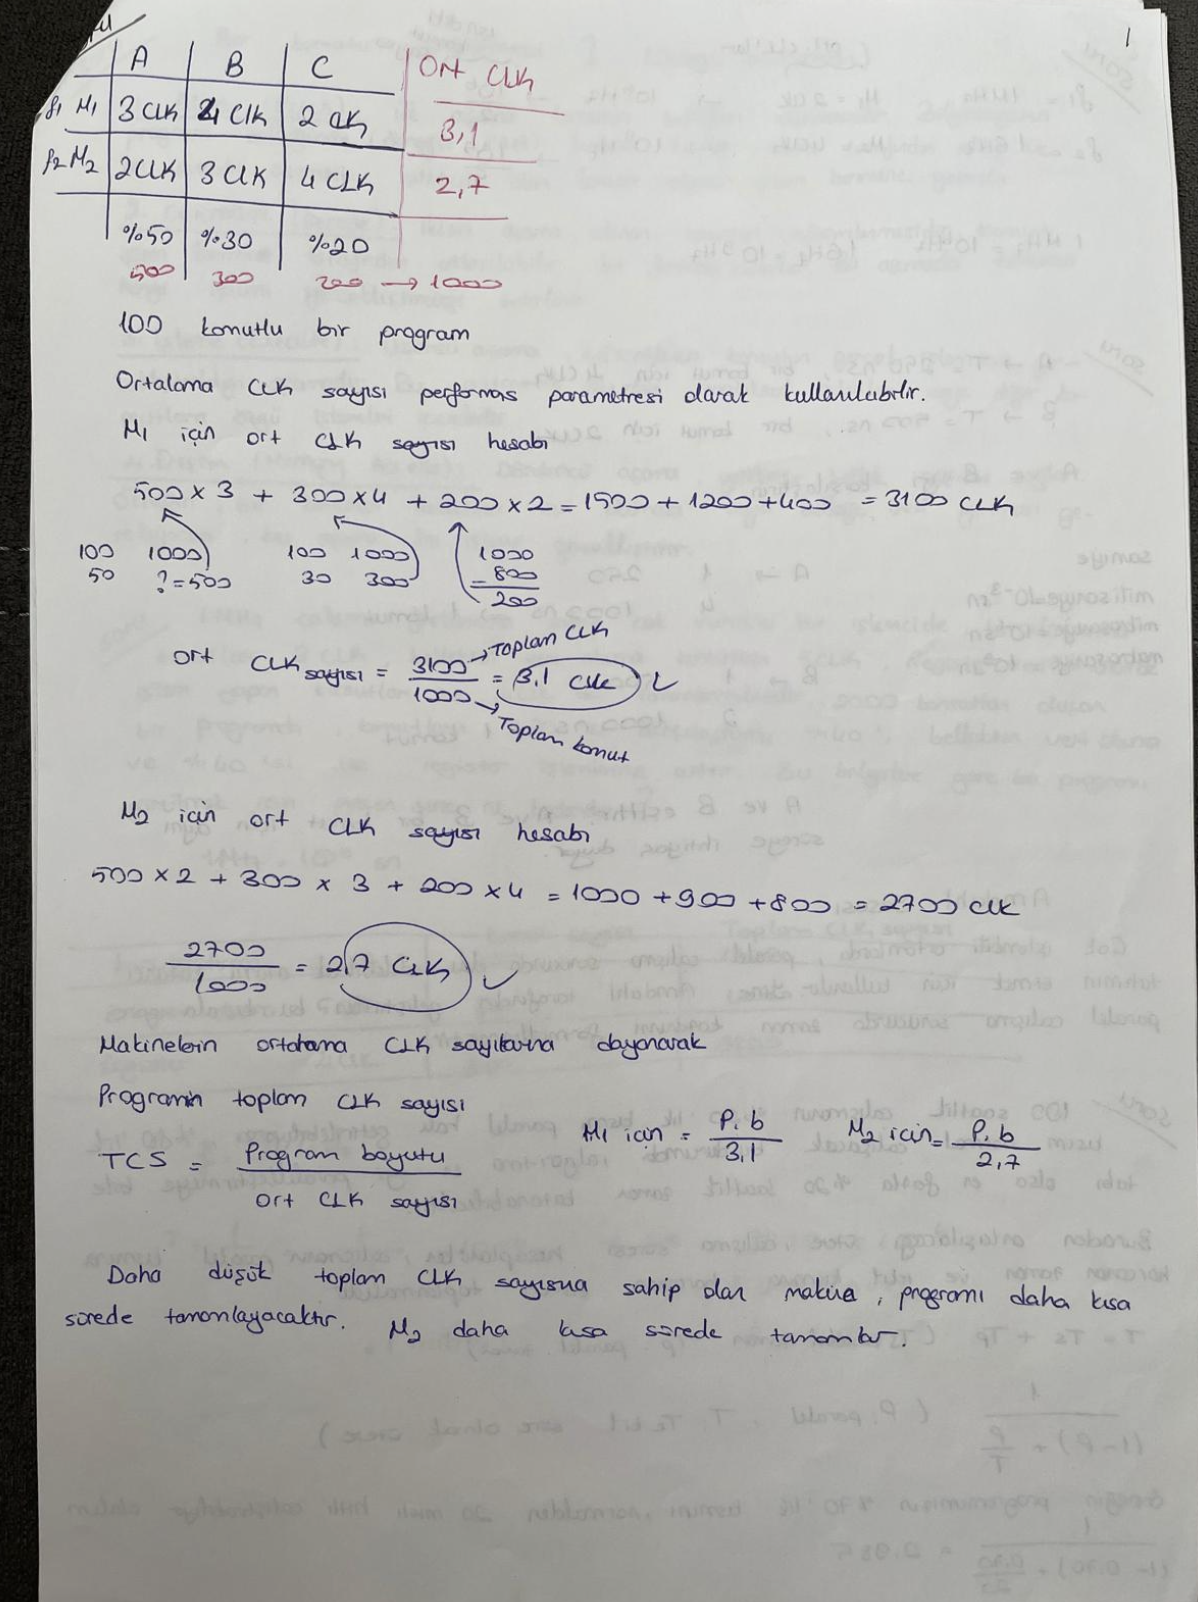 1
A B C Ort CLK
f1 M1 3 CLK 4 Clk 2 CLK 3,1
f2 M2 2CLK 3 CLK 4 CLK 2,7
%50 %30 %20
500 300 200 → 1000
100 komutlu bir program
Ortalama CLK sayısı performas parametresi olarak kullanılabilir.
M1 için ort CLK sayısı hesabı
500 x 3 + 300 x 4 + 200 x 2 = 1500 + 1200 + 400 = 3100 CLK
100 1000 100 1000 1000
50 ? = 500 30 300 - 800
200
Ort CLK sayısı = 3100 / 1000 = 3,1 CLK
Toplam CLK
Toplam komut
M2 için ort CLK sayısı hesabı
500 x 2 + 300 x 3 + 200 x 4 = 1000 + 900 + 800 = 2700 CLK
2700 / 1000 = 2,7 CLK
Makinelerin ortalama CLK sayılarına dayanarak
Programın toplam CLK sayısı
TCS = Program boyutu / Ort CLK sayısı M1 için = P.b / 3,1 M2 için = P.b / 2,7
Daha düşük toplam CLK sayısına sahip olan makine, programı daha kısa
sürede tamamlayacaktır. M2 daha kısa sürede tamamlar.